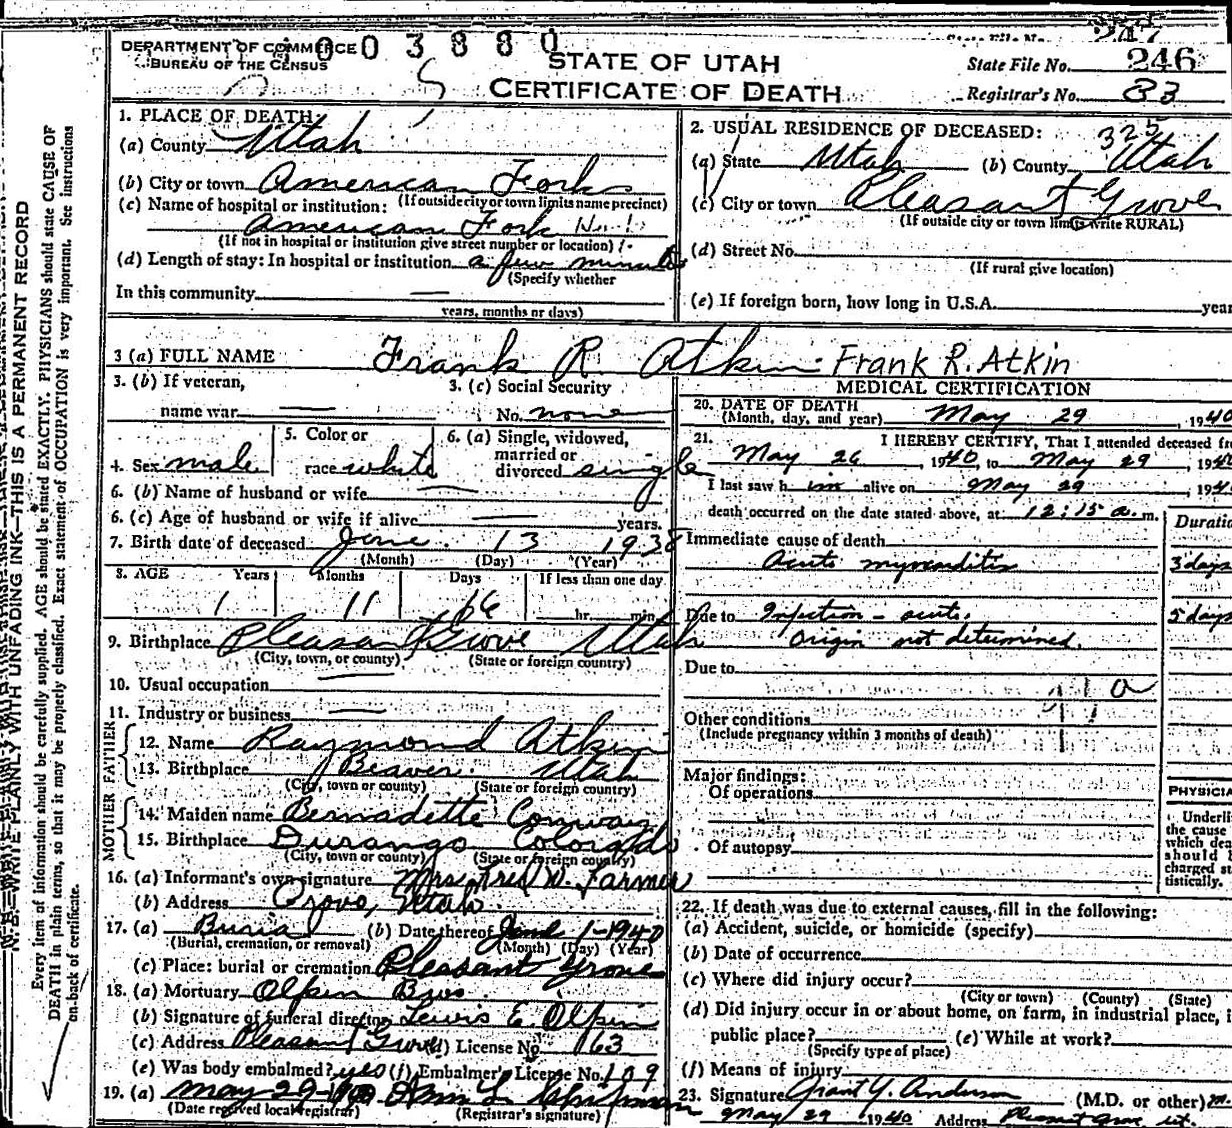 DEPARTMENT OF COMMERCE
BUREAU OF THE CENSUS
003880
STATE OF UTAH
CERTIFICATE OF DEATH
State File No. 246
Registrar's No. 83
1. PLACE OF DEATH:
(a) County Utah
(b) City or town American Fork
(If outside city or town limits name precinct)
(c) Name of hospital or institution:
American Fork
(If not in hospital or institution give street number or location)
(d) Length of stay: In hospital or institution a few minutes
(Specify whether
In this community
years, months or days)
2. USUAL RESIDENCE OF DECEASED: 325
(a) State Utah (b) County Utah
(c) City or town Pleasant Grove
(If outside city or town limits write RURAL)
(d) Street No.
(If rural give location)
(e) If foreign born, how long in U.S.A. year
3 (a) FULL NAME Frank R. Atkin Frank R. Atkin
3. (b) If veteran,
name war
3. (c) Social Security
No. none
4. Sex male
5. Color or
race white
6. (a) Single, widowed,
married or
divorced single
6. (b) Name of husband or wife
6. (c) Age of husband or wife if alive years.
7. Birth date of deceased June 13 1938
(Month) (Day) (Year)
8. AGE Years Months Days If less than one day
1 11 16 hr. min.
9. Birthplace Pleasant Grove Utah
(City, town, or county) (State or foreign country)
10. Usual occupation
11. Industry or business
FATHER
12. Name Raymond Atkin
13. Birthplace Beaver Utah
(City, town or county) (State or foreign country)
MOTHER
14. Maiden name Bernadette Conway
15. Birthplace Durango Colorado
(City, town or county) (State or foreign country)
16. (a) Informant's own signature Mrs. Fred W. Farmer
(b) Address Provo, Utah
17. (a) Burial (b) Date thereof June 1-1940
(Burial, cremation, or removal) (Month) (Day) (Year)
(c) Place: burial or cremation Pleasant Grove
18. (a) Mortuary Olpin Bros
(b) Signature of funeral director Lewis E. Olpin
(c) Address Pleasant Grove (d) License No. 163
(e) Was body embalmed? yes (f) Embalmer's License No. 109
19. (a) May 29-1940
(Date received local registrar) (Registrar's signature)
MEDICAL CERTIFICATION
20. DATE OF DEATH
(Month, day, and year) May 29, 1940
21. I HEREBY CERTIFY, That I attended deceased fr
May 26, 1940, to May 29, 194
I last saw him alive on May 29, 194
death occurred on the date stated above, at 12:15 a.m.
Duratio
Immediate cause of death
Acute myocarditis 3 days
Due to Infection - acute, 5 days
Origin not determined.
Due to
Other conditions
(Include pregnancy within 3 months of death)
Major findings:
Of operations
Of autopsy
PHYSICIA
Underli
the cause
which dea
should b
charged st
tistically.
22. If death was due to external causes, fill in the following:
(a) Accident, suicide, or homicide (specify)
(b) Date of occurrence
(c) Where did injury occur?
(City or town) (County) (State)
(d) Did injury occur in or about home, on farm, in industrial place, i
public place? (e) While at work?
(Specify type of place)
(f) Means of injury
23. Signature Grant Y. Anderson (M.D. or other) M.
May 29 1940 Address Pleasant Grove Ut.
N.B.—WRITE PLAINLY WITH UNFADING INK—THIS IS A PERMANENT RECORD
Every item of information should be carefully supplied. AGE should be stated EXACTLY. PHYSICIANS should state CAUSE OF
DEATH in plain terms, so that it may be properly classified. Exact statement of OCCUPATION is very important. See instructions
on back of certificate.